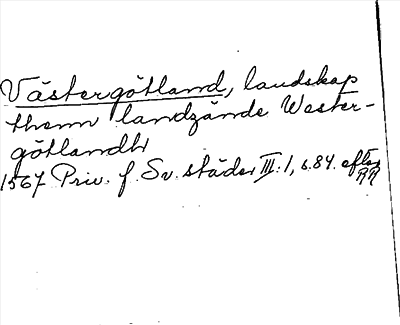 Västergötland, landskap
them landzände Wester-
götlandh
1567 Priv. f. Sv. städer III:1, s. 84. efter
RR